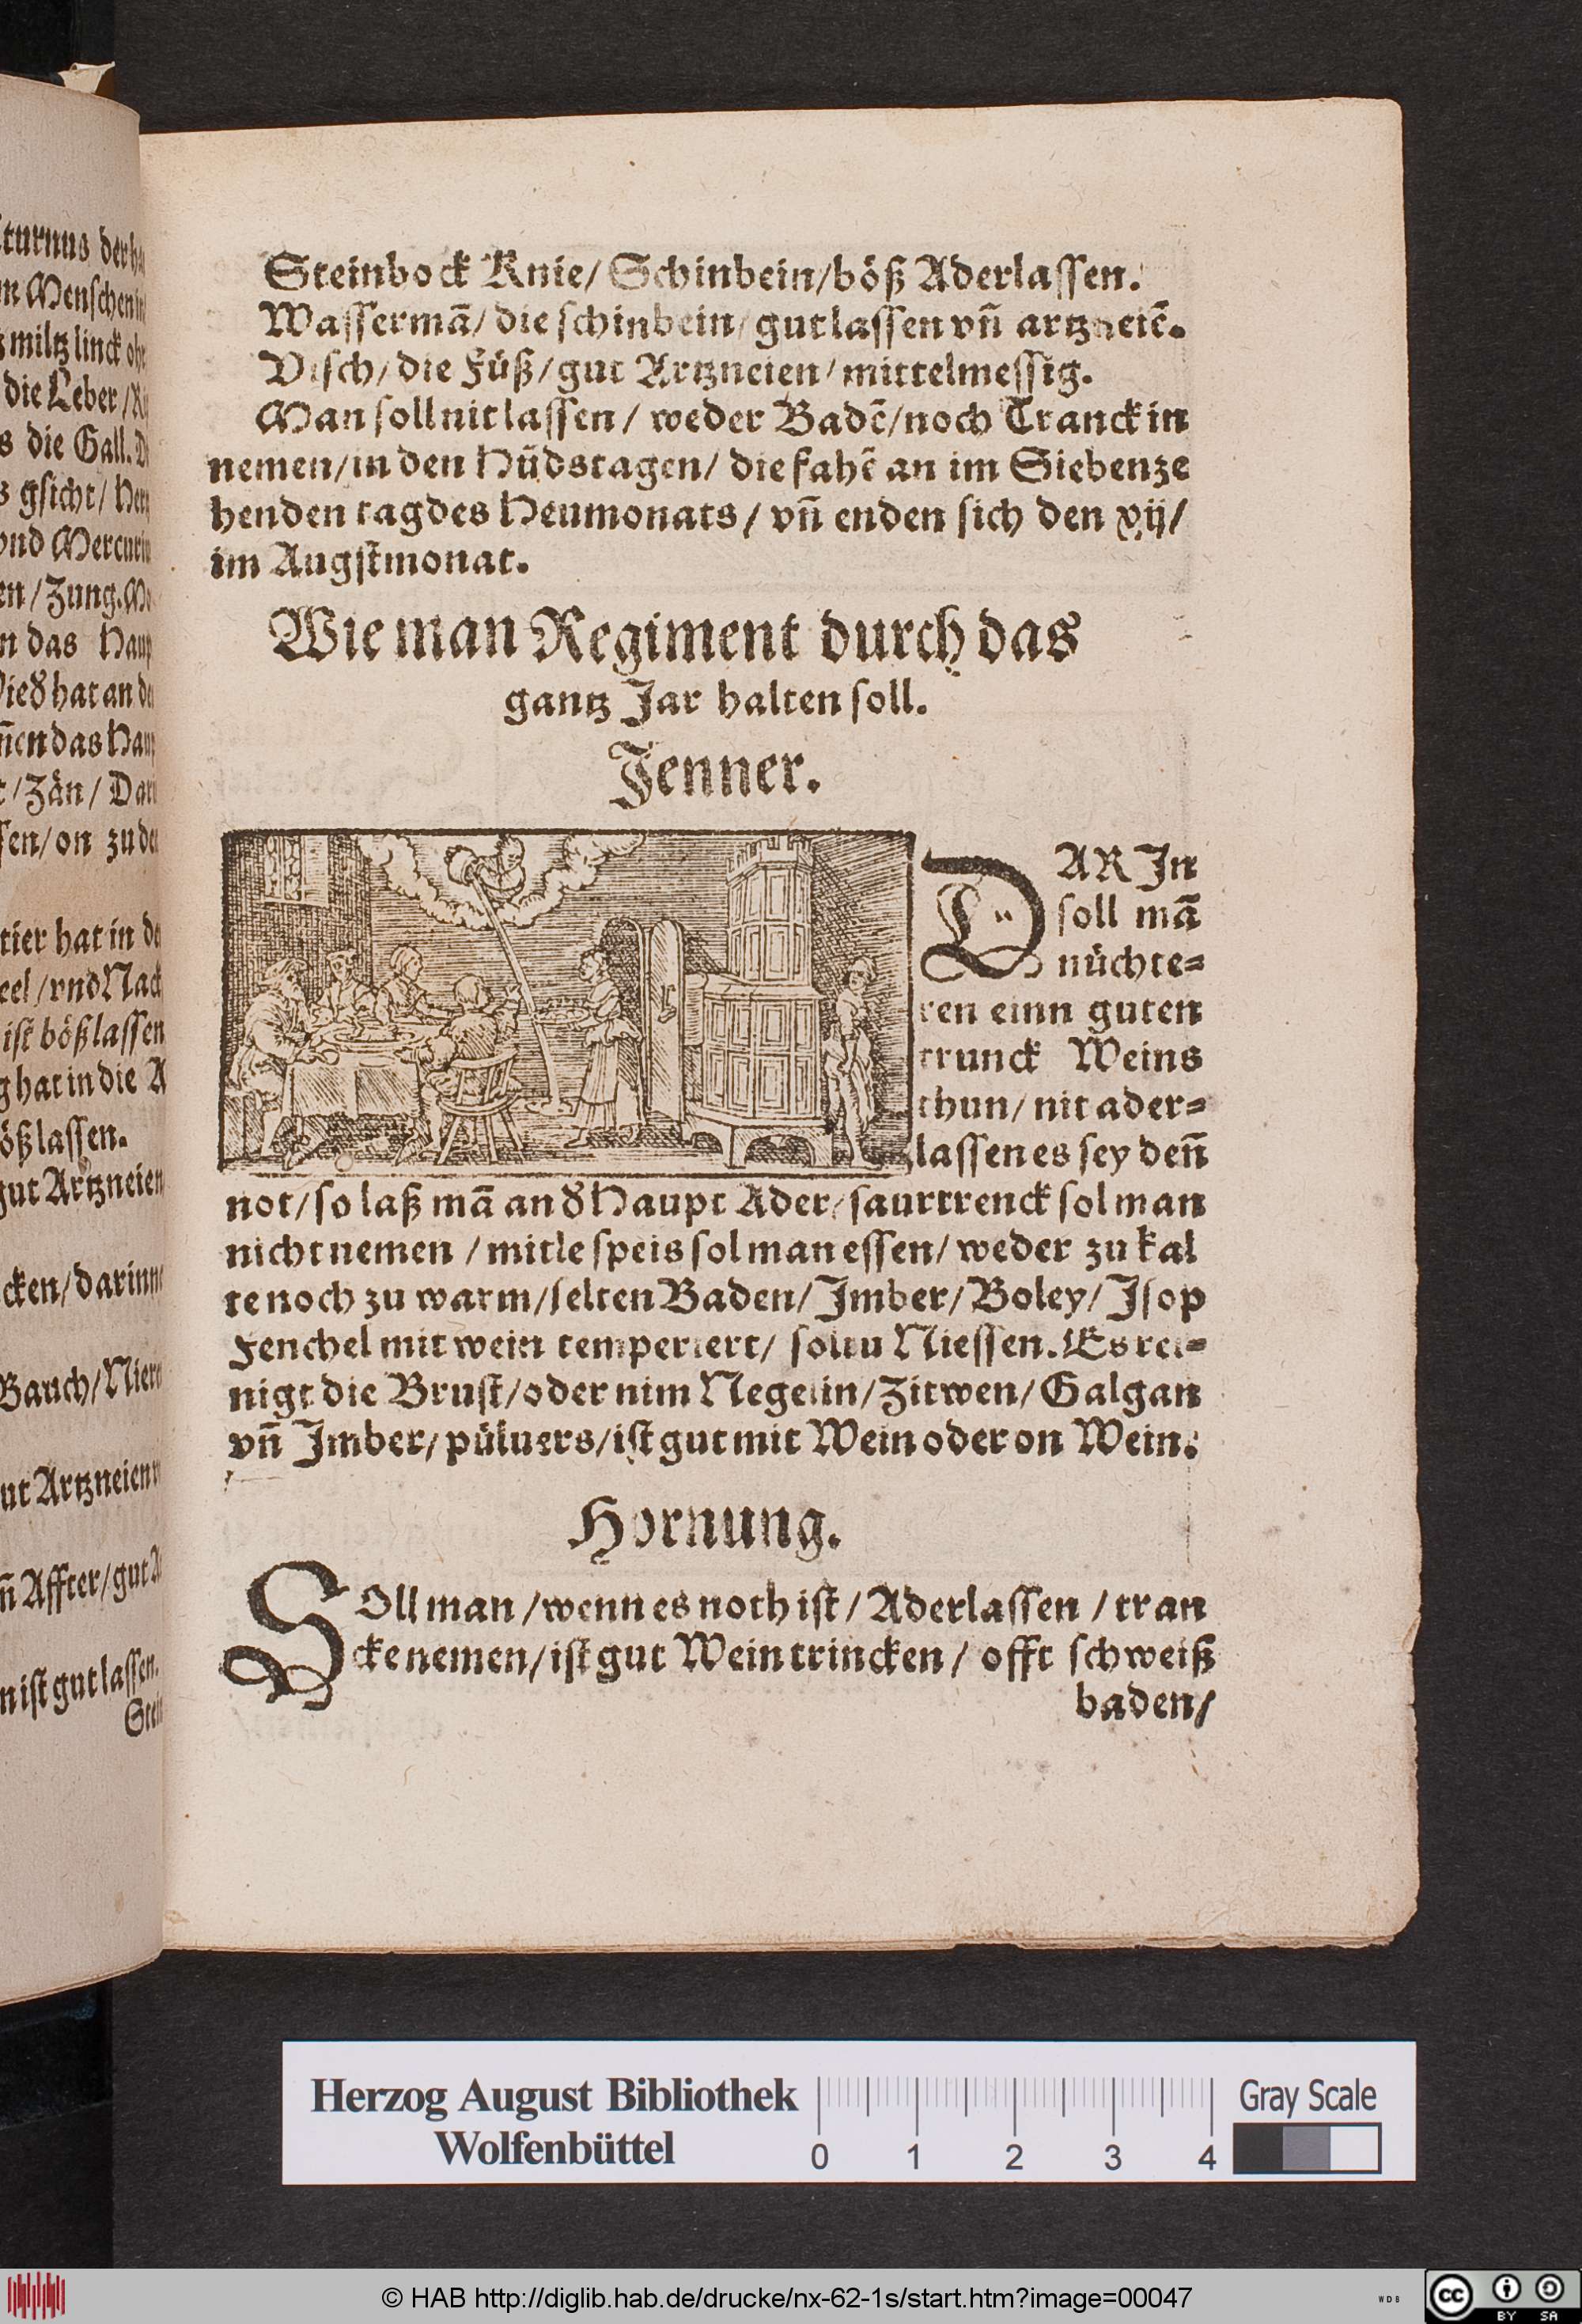 Steinbock Knie/ Schinbein/böß Aderlassen.
Wassermā/ die schinbein/ gut lassen vn̄ artzneiē.
Visch/ die Füß/ gut Artzneien/ mittelmessig.
Man soll nit lassen/ weder Badē/noch Tranck in
nemen/in den Hūdstagen/ die fahē an im Siebenze
henden tag des Heumonats/ vn̄ enden sich den xij/
im Augstmonat.
Wie man Regiment durch das
gantz Jar halten soll.
Jenner.
DAR In
soll mā
nüchte=
ren einn guten
trunck Weins
thun/ nit ader=
lassen es sey den̄
not/ so laß mā an d' Haupt Ader/ saurtrenck sol man
nicht nemen / mitle speis sol man essen/ weder zu kal
te noch zu warm/selten Baden/ Imber/ Boley/ Isop
Fenchel mit wein temperiert/ soltu Niessen. Es rei=
nigt die Brust/oder nim Negelin/Zitwen/ Galgan
vn̄ Imber/ pülvers/ist gut mit Wein oder on Wein.
Hornung.
SOll man /wenn es noth ist/ Aderlassen / tran
cke nemen/ist gut Wein trincken/ offt schweiß
baden/
turnus der
n Menschen
miltz linck
die Leber
s die Gall.
s gsicht/
vnd
en/Zung.
n das Haup
hat an
das
t/Zän/
sen/on zu
tier hat in
vnd Nack
ist böß lassen
g hat in die A
öß lassen.
gut Artzneien
cken/darinne
Bauch/Nieren
ut Artzneien
n̄ Affter/gut
n ist gut lassen.
Stei
Herzog August Bibliothek
Wolfenbüttel
0 1 2 3 4
Gray Scale
© HAB http://diglib.hab.de/drucke/nx-62-1s/start.htm?image=00047
WDB
cc BY SA